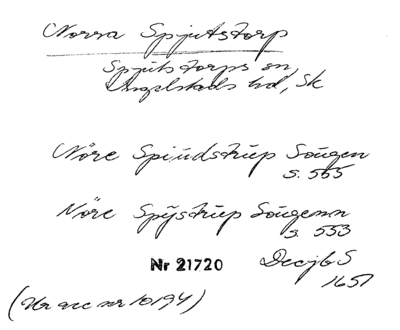 Norra Spjutstorp
Spjutstorps sn,
Ingelstads hd, Sk
Nöre Spiudstrup Sougen
s. 555
Nöre Spÿstrup Sougenn
s. 553
Nr 21720
DecjbS
1651
(Ur acc nr 10194)